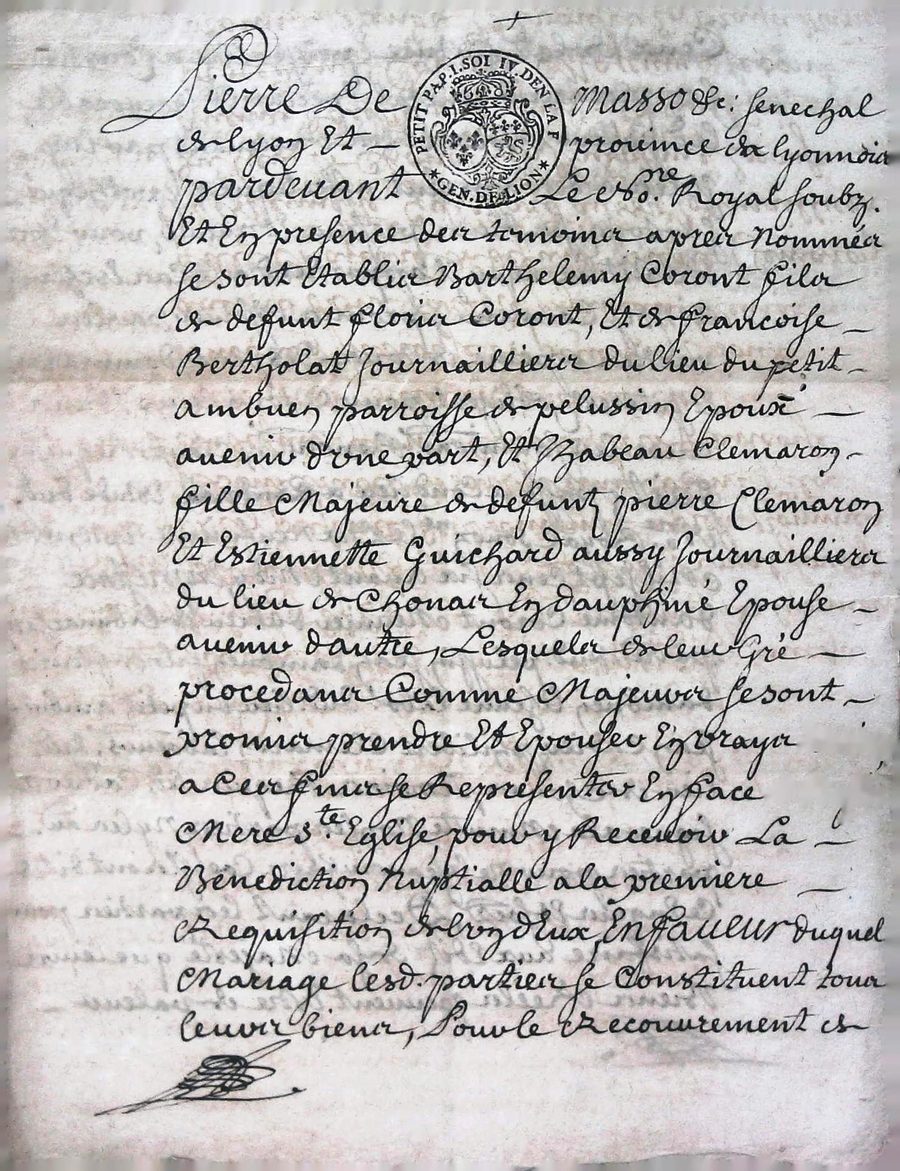 PETIT PAP. I. SOL IV. DEN LA F
GEN. DE LION
Pierre De Masso &c: senechal
de lyon Et – province de lyonnois
pardevant Le No.re Royal soubz.
Et En presence des temoins apres nommés
se sont Etablis Barthelemy Coront fils
de defunt floris Coront, Et de francoise –
Bertholat Journailliers du lieu du petit –
ambuen parroisse de pelussin Epoux –
avenir d'une part, Et Izabeau Clemaron –
fille Majeure de defunt pierre Clemaron
Et Estiennette Guichard aussy Journailliers
du lieu de Chonas En dauphiné Epouse –
avenir d'autre, Lesquels de leur Gré –
procedans Comme Majeurs se sont –
promis prendre Et Epouser En vrays
a Ces fins se Representer En face
Mere Ste Eglise, pour y Recevoir La –
Benediction Nuptialle a la premiere –
Requisition de l'un d'Eux, En faveur duquel
Mariage lesd. parties se Constituent tous
leurs biens, Pour le Recouvrement de